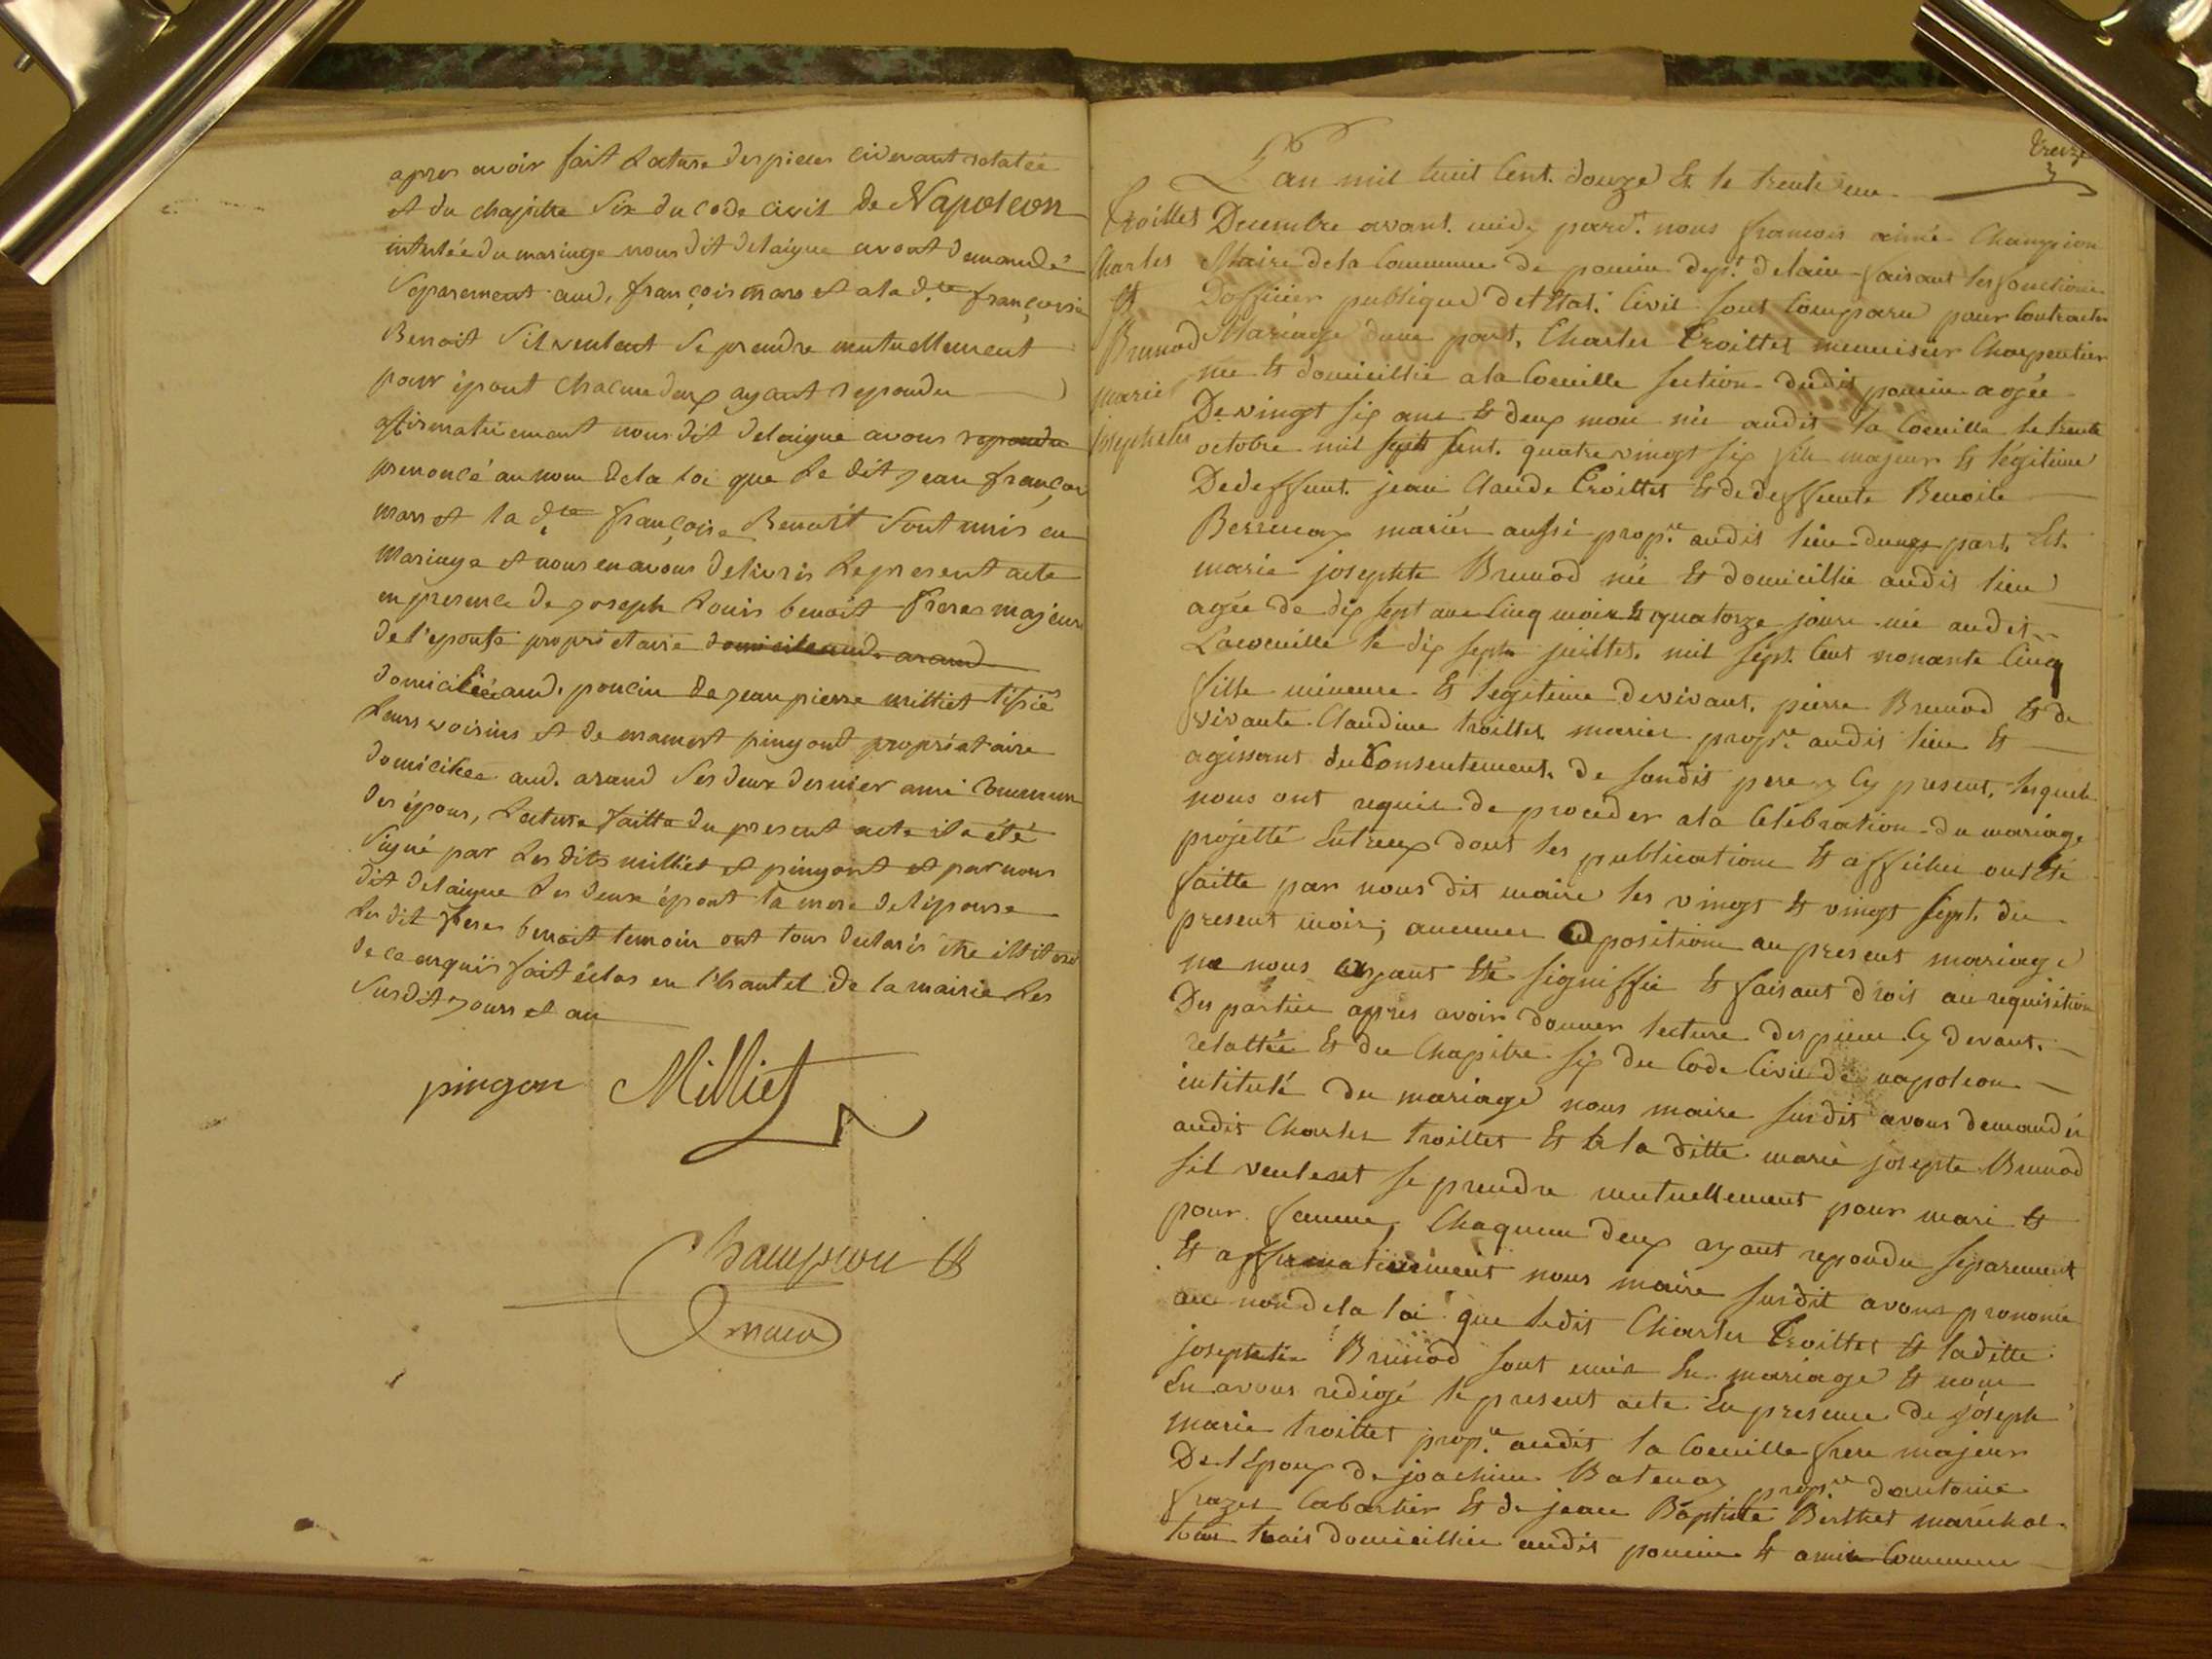 apres avoir fait Lecture des pieces cidevant relatée
et du chapitre Six du code civil de Napoleon
intulée du mariage nous dit delaigue avont demandé
Separement aud. françois mars et a la dte françoise
Benoit Sil veulent Se prendre mutuellement
pour épout chacun deux ayant repondu
afirmativement nous dit delaigue avous repondu
prenoncé au nom de la loi que Le dit jean françois
mars et la dte françoise Benoit Sont unis en
Mariage et nous en avons delivris Le present acte
en presence de joseph Louis benoit freres majeur
de l'epouse proprietaire domicile aud. arand
domiciliée aud. poncin de jean pierre milliet
Leurs voisins et de mamert pingont propriataire
domiciliee aud. arand Ses deux dernier ami Commun
des épous, Lecture faitte du present acte il a été
Signé par Les dits milliet et pingont et par nous
dit delaigue Les deux épont la mere de l'épouse
Les dit freres benoit temoin ont tous declarés etre illiterés
de ce enquis fait éclos en l'hautel de la mairie Les
Susdit jours et an
pingon Milliet
Champion
maire
treize
L'an mil huit Cent. douze Et le trente un
Decembre avant. midy pard.t nous francois aimé Champion
Maire de la Commune de poncin dept. delain faisant les fonctions
Dofficier publique det Etat. Civil Sont Comparu pour Contracter
Mariage dune part, Charles Troillet menuisier Charpentier
née Et domicillié a la Coeuille Section dudit poncin agée
De vingt six ans Et deux mois née audit la Coeuille le trente
octobre mil Sept Cent. quatre vingt six fils majeur Et légitime
De deffunt. jean Claude Troillet Et de deffunte Benoite
mariés aussi prop.re audit lieu dune part, Et.
marie josephte Brunod née Et domicillie audit lieu
agée de dix sept ans Cinq mois Et quatorze jours née audit
Lacoeuille le dix sept juillet. mil Sept. Cent nonante Cinq
fille mineure Et legitime de vivant. pierre Brunod Et de
vivante Claudine troillet mariés prop.re audit lieu Et
agissant du Consentement. de Sondit pere Cy present, lesquels
nous ont requis de proceder a la Celébration du mariage
projetté Entreux dont les publications Et affiches ont Eté
faitte par nous dit maire les vingt Et vingt Sept. du
present mois; aucunes Opositions au present mariage
ne nous ayant Eté signiffié Et faisant droit au requisition
Des parties apres avoir donner lecture des pieces Cy devant.
relattée Et du Chapitre six du Code Civil de napoleon
intitulé du mariage nous maire susdit avons demandés
audit Charles troillet Et a la ditte marie josepte Brunod
Sil veulent Se prendre mutuellement pour mari Et
pour femme, Chaquun deux ayant repondu Separement
Et affirmativement nous maire Susdit avons prononcé
au nom de la loi que ledit Charles Troillet Et laditte
josephte Brunod Sont unis En mariage Et nous
En avons redigé le present acte En presence de joseph
marie troillet prop.re audit la Coeuille frere majeur
De lEpoux de joachim prop.re dantoine
Cabartier Et de jean Baptiste Berthet maréchal
tous trois domicilliés audit poncin Et amis Commun
Troillet
Charles
Et
Brunod
marie
josephete